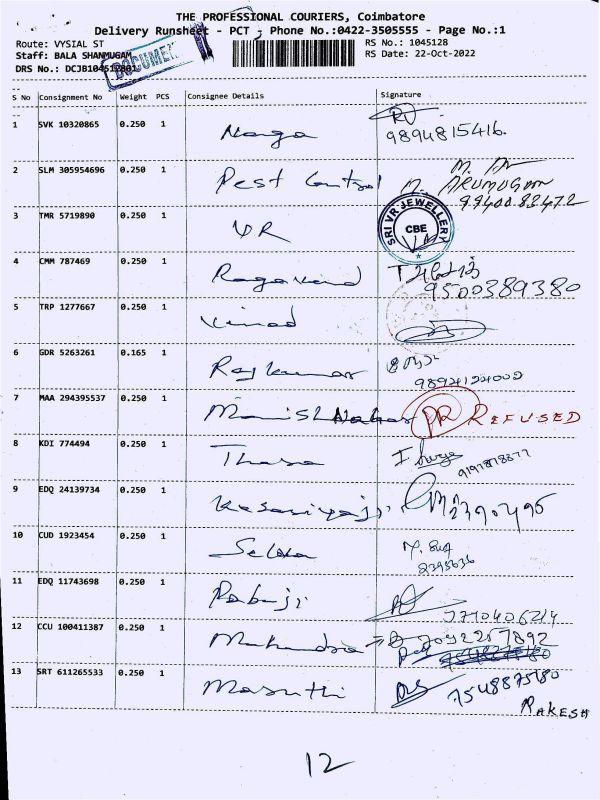 THE PROFESSIONAL COURIERS, Coimbatore
Delivery Runsheet - PCT - Phone No.:0422-3505555 - Page No.:1
Route: VYSIAL ST RS No.: 1045128
Staff: BALA SHANMUGAM RS Date: 22-Oct-2022
DRS No.: DCJB104512801
DOCUMENT
S No Consignment No Weight PCS Consignee Details Signature
1 SVK 10320865 0.250 1 Naaga 9894815416.
2 SLM 305954696 0.250 1 Pest Control M. ARUMUGAM
99400 83472
3 TMR 5719890 0.250 1 VR SRI VR JEWELLERY CBE
4 CMM 787469 0.250 1 9500389380
5 TRP 1277667 0.250 1 Vinod
6 GDR 5263261 0.165 1 Rajkumar
7 MAA 294395537 0.250 1 Manish PR REFUSED
8 KDI 774494 0.250 1
9 EDQ 24139734 0.250 1 Kesariyaji
10 CUD 1923454 0.250 1
8395636
11 EDQ 11743698 0.250 1 Babuji
12 CCU 100411387 0.250 1 Mahendra 7092257892
13 SRT 611265533 0.250 1 Maruthi 7548875180
RAKESH
12